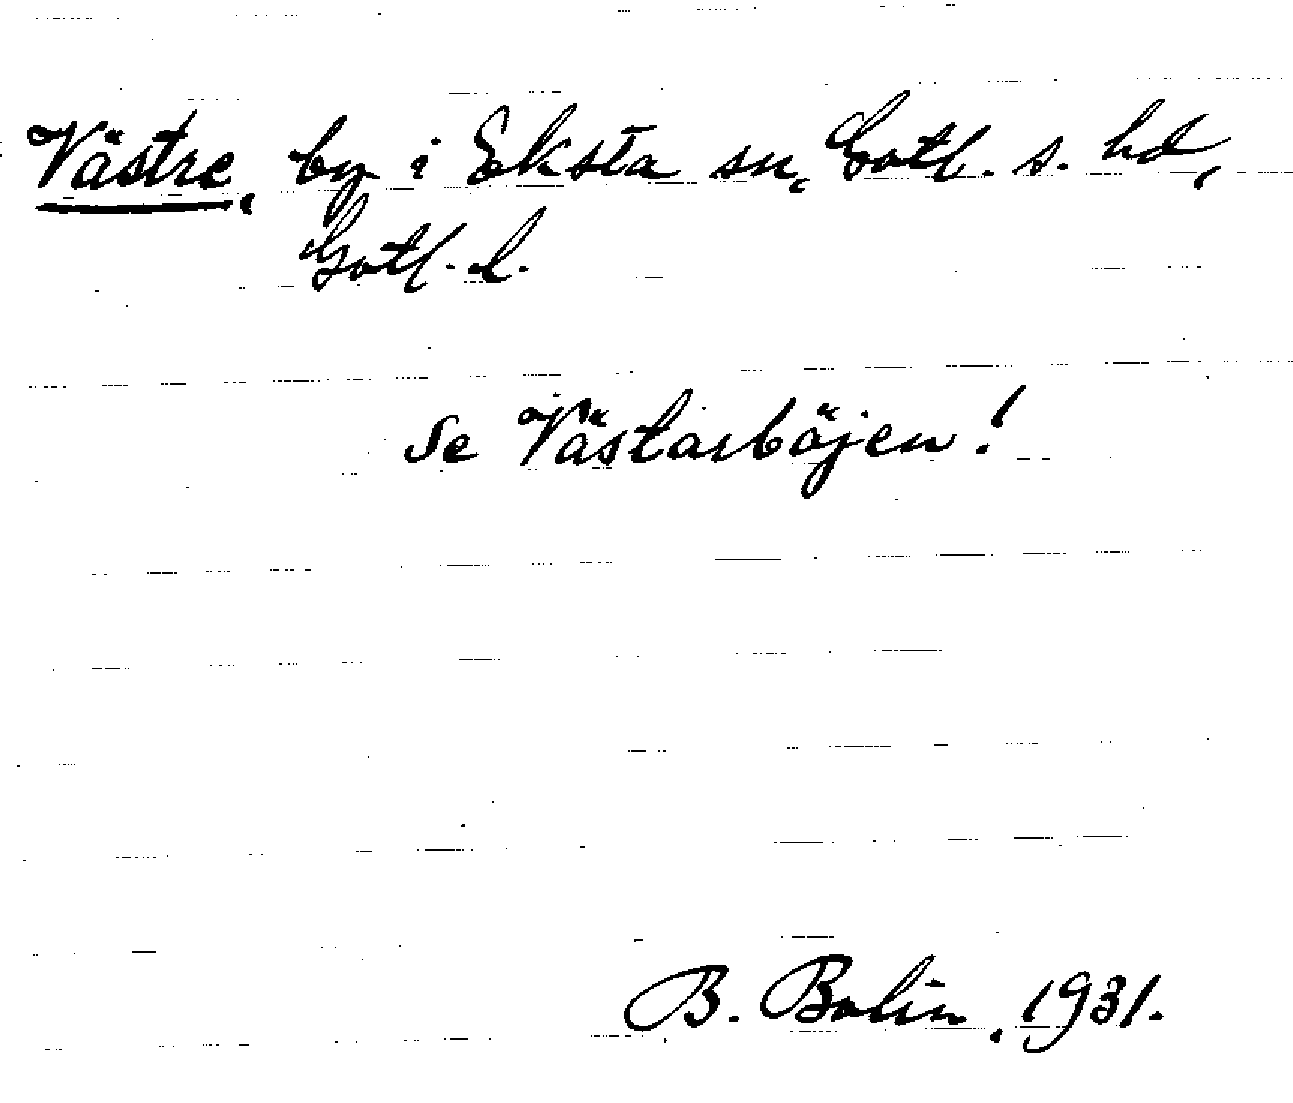 Västre, by i Eksta sn, Gotl. s. hd,
Gotl. l.
Se Västarböjen!
B. Bolin, 1931.